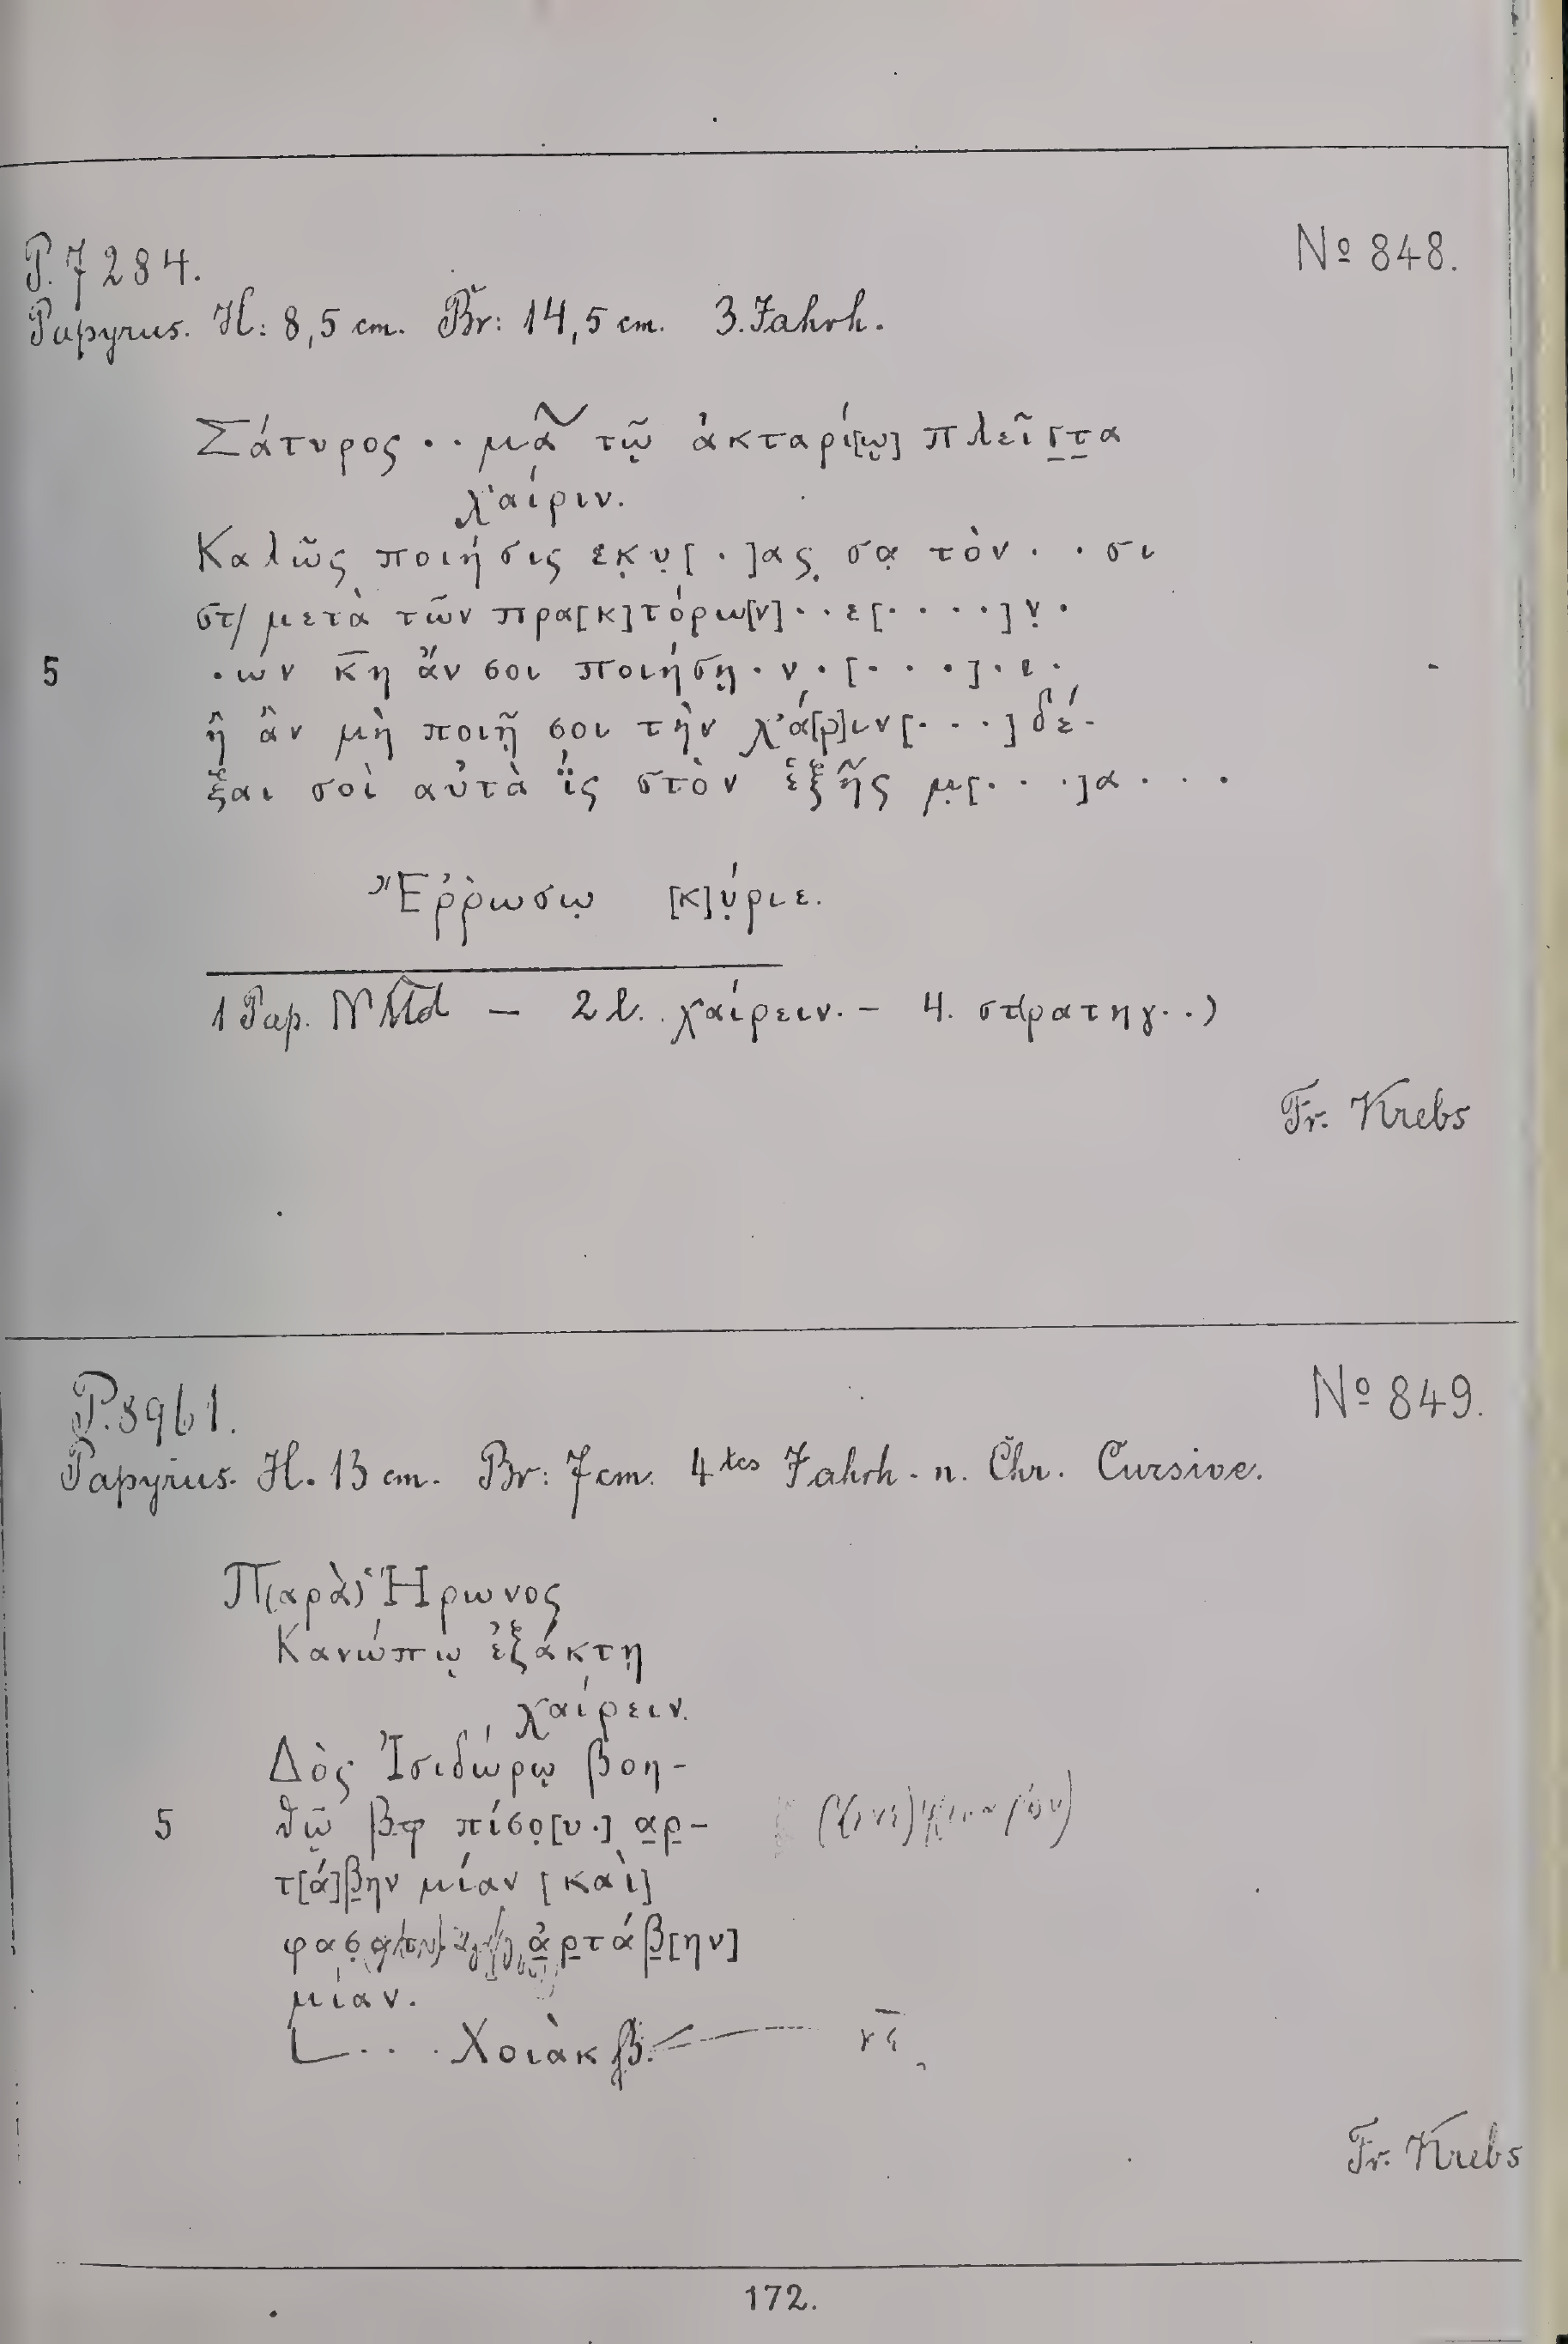 P. 7284.
No 848.
Papyrus. H: 8,5 cm. Br: 14,5 cm. 3. Jahrh.
Σάτυρος . . μᾶ τῷ ἀκταρί[ῳ] πλεῖστα
χαίριν.
Καλῶς ποιήσις εκυ[.]ας σα τὸν . . σι
στ/ μετὰ τῶν πρα[κ]τόρω[ν] . . ε[. . . .]ν .
5 . ων κ̅η ἄν σοι ποιήσῃ . ν . [. . . .] . ε .
ἢ ἂν μὴ ποιῇ σοι τὴν χά[ρ]ιν[. . .] δέ-
ξαι σοὶ αὐτὰ ΐς στὸν ἑξῆς μ[. . .]α . . .
Ἔῤῥωσω [κ]ύριε.
1 Pap. – 2 l. χαίρειν. – 4. στ(ρατηγ . .)
Fr. Krebs
P. 8961.
No 849.
Papyrus. H. 13 cm. Br: 7 cm. 4tes Jahrh. n. Chr. Cursive.
Π(αρὰ) Ἥρωνος
Κανώπῳ ἐξάκτῃ
χαίρειν.
Δὸς Ἰσιδώρῳ βοη-
5 θῷ βφ πίσο[υ .] αρ-
τ[ά]βην μίαν [καὶ]
φασ ἀρτάβ[ην]
μίαν.
L . . . Χοιὰκ β.
Fr. Krebs
172.